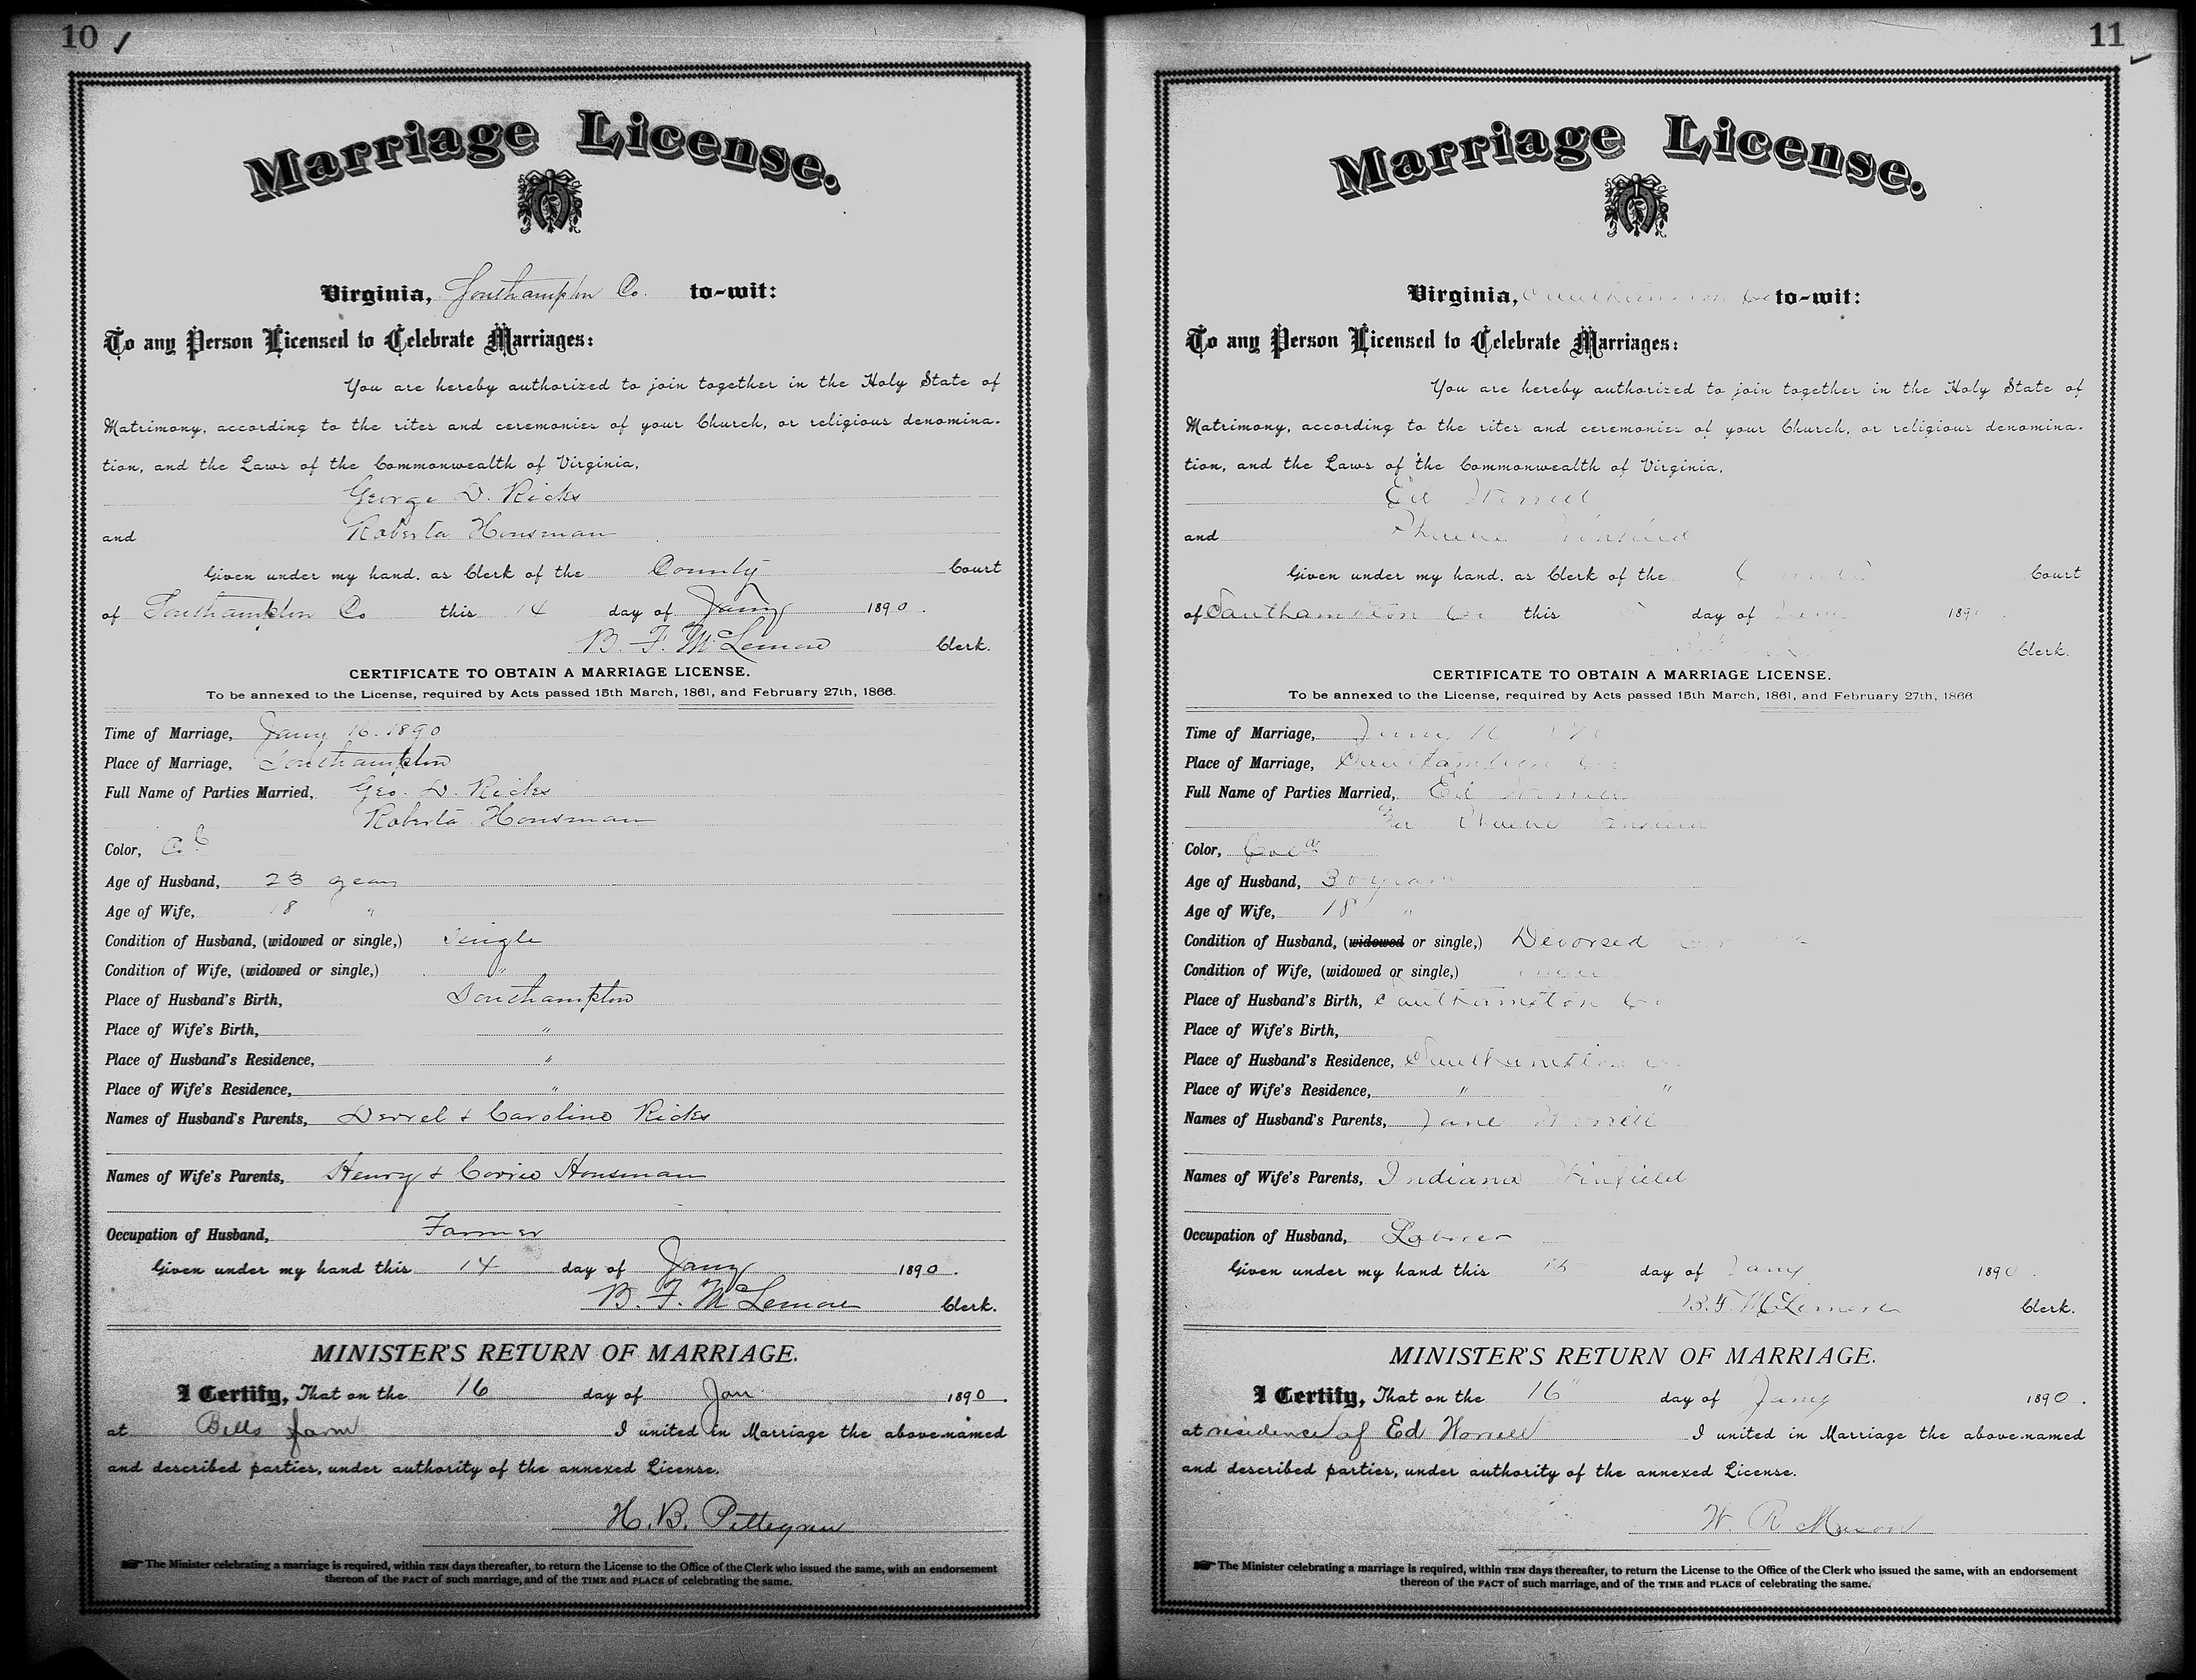 10
Marriage License.
Virginia, Southampton Co. to-wit:
To any Person Licensed to Celebrate Marriages:
You are hereby authorized to join together in the Holy State of
Matrimony, according to the rites and ceremonies of your Church, or religious denomina-
tion, and the Laws of the Commonwealth of Virginia,
George D. Ricks
and Roberta Housman
Given under my hand, as Clerk of the County Court
of Southampton Co this 14 day of Jany 1890.
B. F. McLemore Clerk.
CERTIFICATE TO OBTAIN A MARRIAGE LICENSE.
To be annexed to the License, required by Acts passed 15th March, 1861, and February 27th, 1866.
Time of Marriage, Jany 16. 1890
Place of Marriage, Southampton
Full Name of Parties Married, Geo. D. Ricks
Roberta Housman
Color, Col
Age of Husband, 23 years
Age of Wife, 18 "
Condition of Husband, (widowed or single,) Single
Condition of Wife, (widowed or single,) "
Place of Husband's Birth, Southampton
Place of Wife's Birth, "
Place of Husband's Residence, "
Place of Wife's Residence, "
Names of Husband's Parents, Derrel & Caroline Ricks
Names of Wife's Parents, Henry & Corrie Housman
Occupation of Husband, Farmer
Given under my hand this 14 day of Jany 1890.
B. F. McLemore Clerk.
MINISTER'S RETURN OF MARRIAGE.
I Certify, That on the 16 day of Jan 1890.
at Bells farm I united in Marriage the above-named
and described parties, under authority of the annexed License.
H. B. Pettegrew
The Minister celebrating a marriage is required, within TEN days thereafter, to return the License to the Office of the Clerk who issued the same, with an endorsement
thereon of the FACT of such marriage, and of the TIME and PLACE of celebrating the same.
11
Marriage License.
Virginia, Southampton Co to-wit:
To any Person Licensed to Celebrate Marriages:
You are hereby authorized to join together in the Holy State of
Matrimony, according to the rites and ceremonies of your Church, or religious denomina-
tion, and the Laws of the Commonwealth of Virginia,
Ed Worrell
and Phoebe Winfield
Given under my hand, as Clerk of the County Court
of Southampton Co this day of Jany 1890.
Clerk.
CERTIFICATE TO OBTAIN A MARRIAGE LICENSE.
To be annexed to the License, required by Acts passed 15th March, 1861, and February 27th, 1866
Time of Marriage, Jany 16 1890
Place of Marriage, Southampton Co
Full Name of Parties Married, Ed Worrell
Phoebe Winfield
Color, Cold
Age of Husband, 30 years
Age of Wife, 18 "
Condition of Husband, (widowed or single,) Devorsed
Condition of Wife, (widowed or single,) Single
Place of Husband's Birth, Southampton Co
Place of Wife's Birth,
Place of Husband's Residence, Southampton Co
Place of Wife's Residence, " "
Names of Husband's Parents, Jane Worrell
Names of Wife's Parents, Indiana Winfield
Occupation of Husband, Laborer
Given under my hand this day of Jany 1890.
B. F. McLemore Clerk.
MINISTER'S RETURN OF MARRIAGE.
I Certify, That on the 16" day of Jany 1890.
at residence of Ed Worrell I united in Marriage the above-named
and described parties, under authority of the annexed License.
W. R. Mason
The Minister celebrating a marriage is required, within TEN days thereafter, to return the License to the Office of the Clerk who issued the same, with an endorsement
thereon of the FACT of such marriage, and of the TIME and PLACE of celebrating the same.